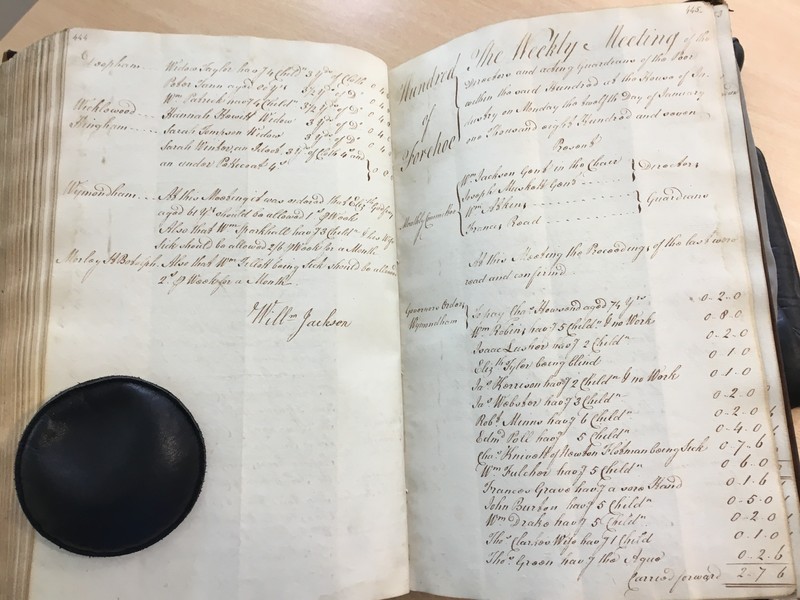 444
Deopham Widow Taylor hav'g 4 Child.n 3 Y.ds of Cloth 0 4
Peter Tunn aged 61 Y.rs 3½ Y.ds of D.o 0 4
W.m Patrick hav.g 4 Child.n 3½ Y.ds of D.o 0 4
Wicklewood Hannah Howlett Widow 3 Y.ds of D.o 0 4
Hingham Sarah Simpson Widow 3 Y.ds of D.o 0
Sarah 3 Y.ds of Cloth 4.s and
an under Pettecoat 4.s
Wymondham At this Meeting it was ordered that Eliz.th
aged 61 Y.rs should be allowed 1.s P Week
Also that W.m Sparkwall hav.g 3 Child.n & his Wife
Sick should be allowed 2/6 P Week for a Month
Morley St Botolph Also that W.m Tillett being Sick should be allowed
2.s P Week for a Month
Will.m Jackson
445.
Hundred of Forehoe
The Weekly Meeting of the
Directors and acting Guardians of the Poor
within the said Hundred at the House of In-
dustry on Monday the twelfth Day of January
one Thousand eight Hundred and seven
Present
Monthly Committee
W.m Jackson Gent in the Chair
Joseph Muskett Gent
Directors
W.m Atkins
Francis Read
Guardians
At this Meeting the Proceedings of the last were
read and confirmed
Governors Orders
Wymondham
To hay Cha.s Howsand aged 74 Y.rs 0-2-0
W.m Robins hav.g 5 Child.n & no Work 0-8-0
Isaac Lusher hav.g 2 Child.n 0-2-0
Eliz.th Tyler being blind 0-1-0
Ja.s Kerrison hav.g 2 Child.n & no Work 0-1-0
Ja.s Webster hav.g 3 Child.n 0-2-0
Rob.t Minns hav.g 6 Child.n 0-2-0
Edm.d Poll hav.g 5 Child.n 0-4-0
Cha.s Knivett of Newton Flotman being Sick 0-7-6
W.m Fulcher hav.g 5 Child.n 0 6-0
Frances Grave hav.g a sore Hand 0-1-6
John Burton hav.g 5 Child.n 0-5-0
W.m Drake hav.g 5 Child.n 0-2-0
Tho.s Clarkes Wife hav.g 1 Child 0-1-0
Tho.s Green hav.g the Ague 0-2-6
Carried forward 2-7-6